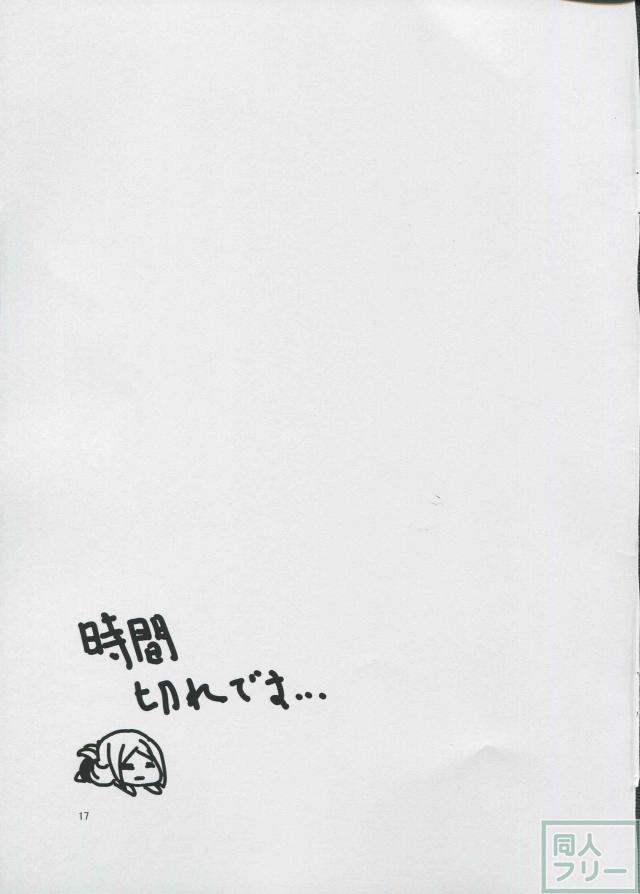 時間
切れでま...
17
同人
フリー